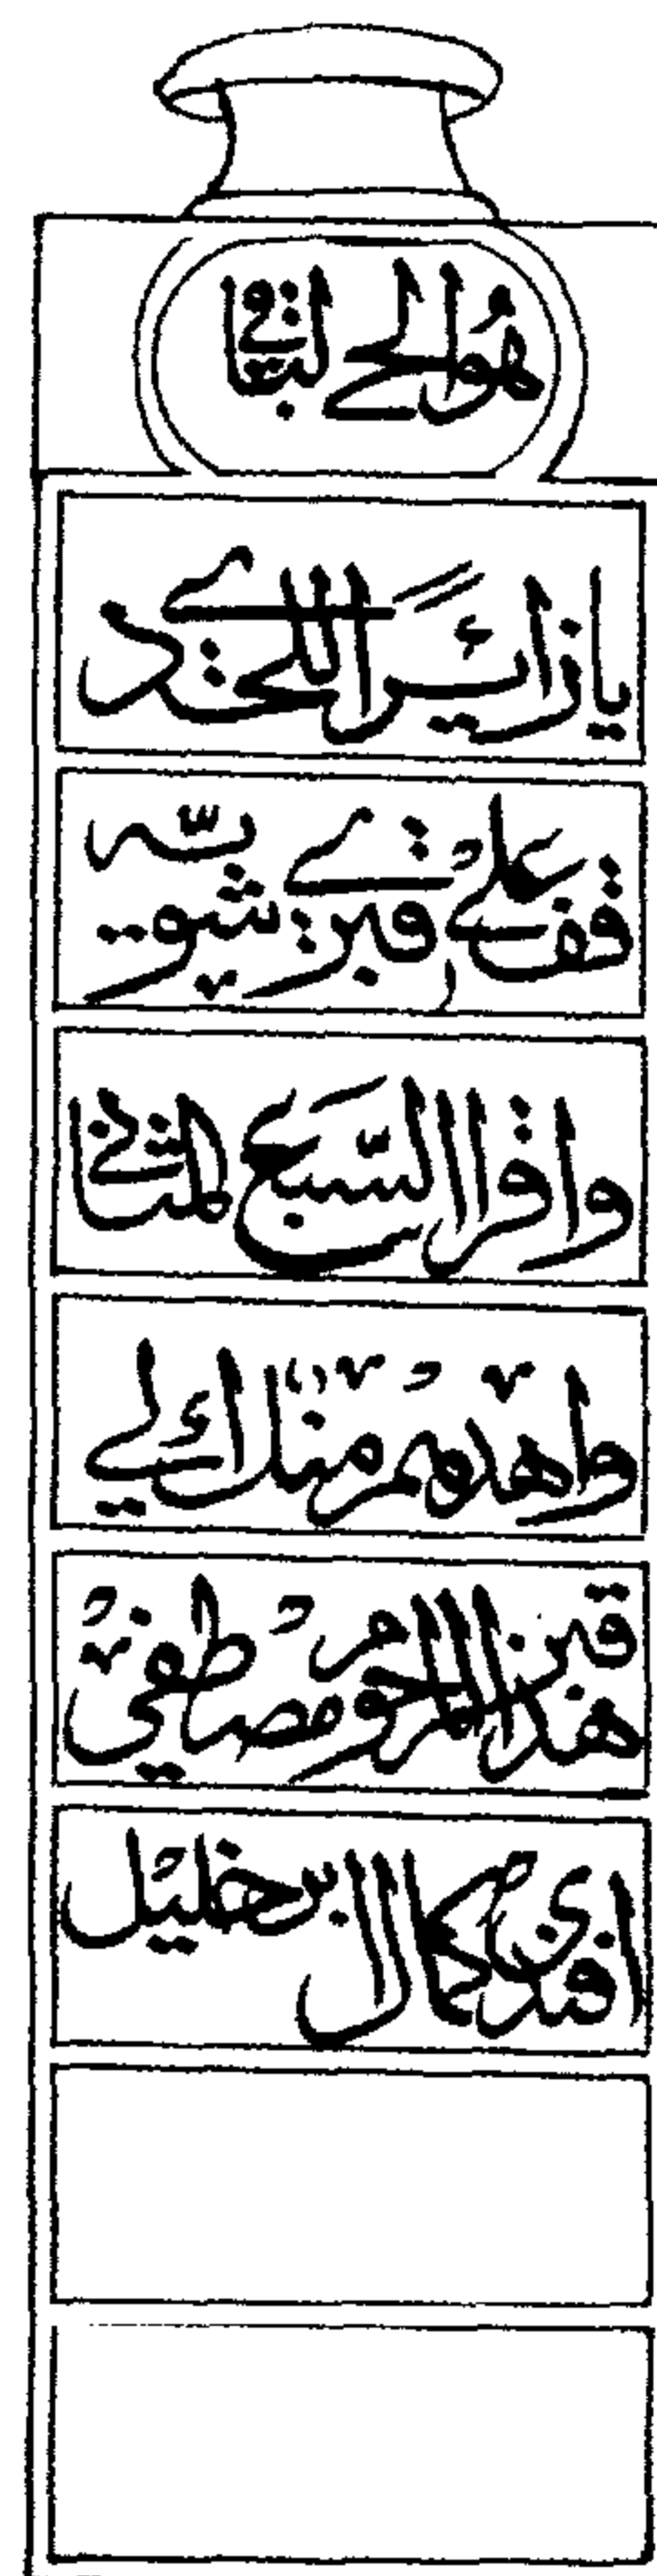 هُوَ الحي لباقي
يا زائرًا اللحدي
قف على قبري شوي
واقرا السبع لمثاني
واهدهم منك الي
قبر هذا المرحوم مصطفى
افندي كمال ابن خليل